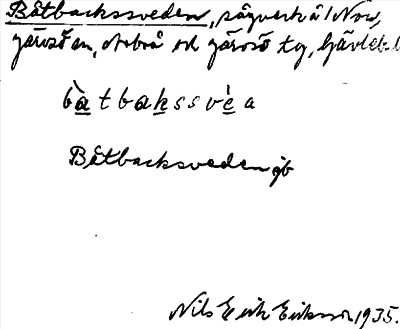 Båtbackssveden, sågverk å l Norr,
Järvsö sn, och Järvsö tg, Gävleb. l
bàtbakssvèa
Båtbacksveden gb
Nils Erik Eriksson 1935.